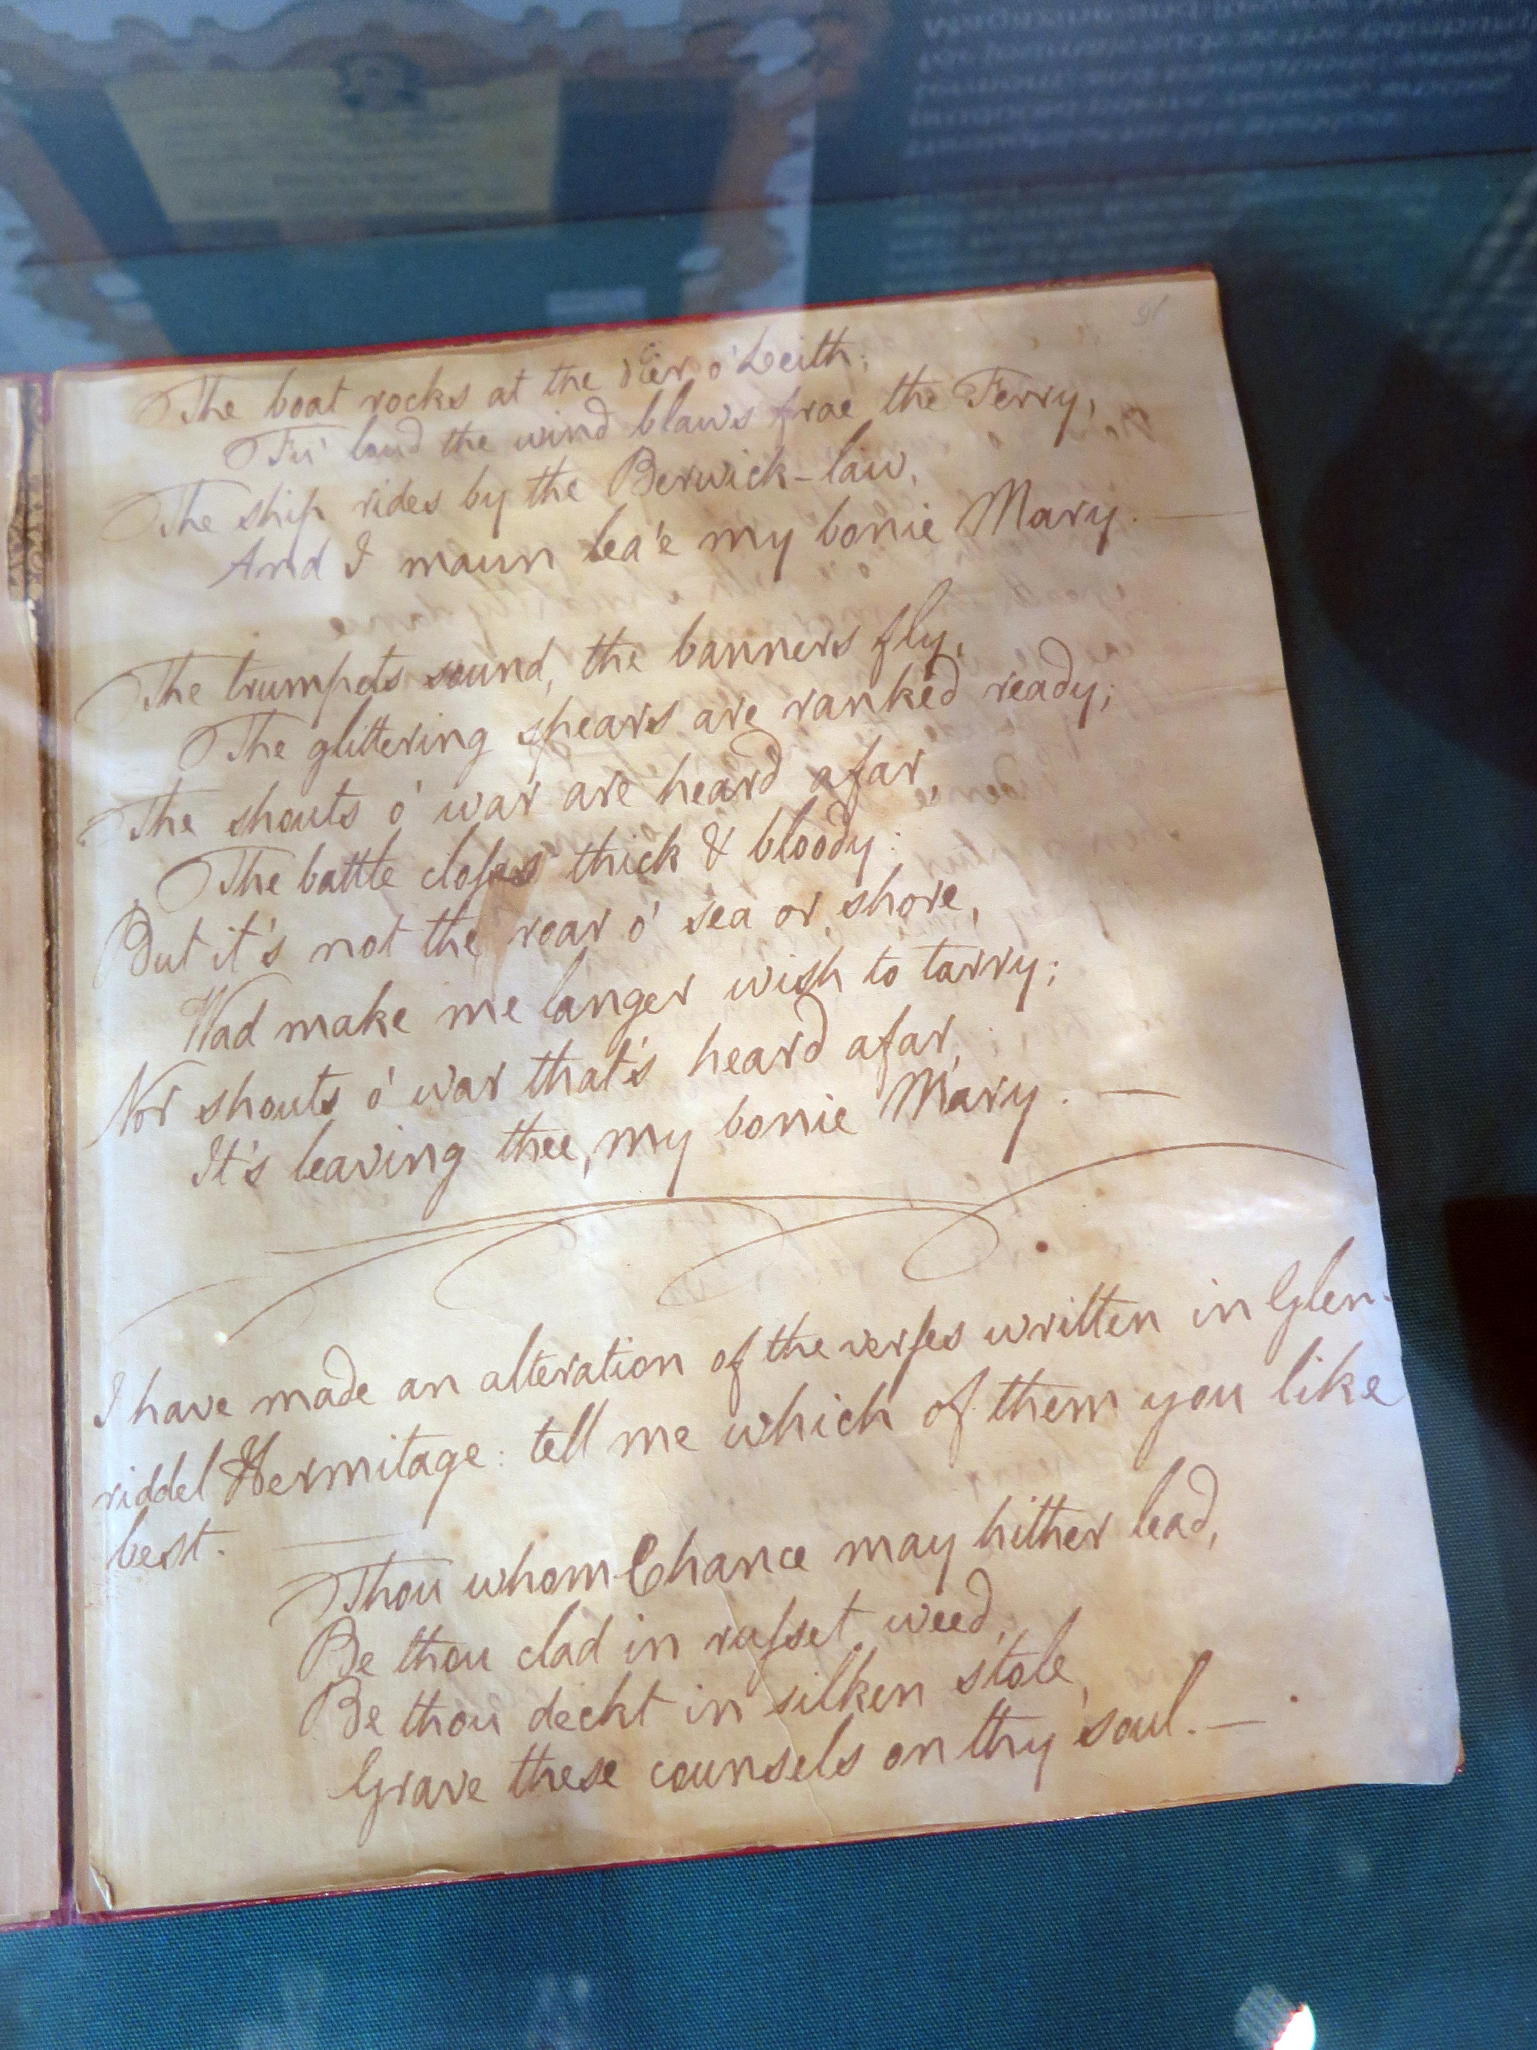 The boat rocks at the Pier o' Leith,
Fu' loud the wind blaws frae the Ferry,
The ship rides by the Berwick-law,
And I maun lea'e my bonie Mary. —
The trumpets sound, the banners fly,
The glittering spears are ranked ready;
The shouts o' war are heard afar,
The battle closes thick & bloody:
But it's not the roar o' sea or shore,
Wad make me langer wish to tarry;
Nor shouts o' war that's heard afar,
It's leaving thee, my bonie Mary. —
I have made an alteration of the verses written in Glen-
riddel Hermitage: tell me which of them you like
best. —
Thou whom Chance may hither lead,
Be thou clad in russet weed,
Be thou deckt in silken stole,
Grave these counsels on thy soul. —